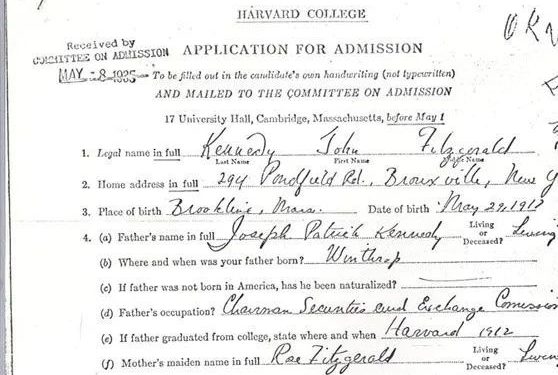 HARVARD COLLEGE
Received by
COMMITTEE ON ADMISSION
MAY -8 1935
APPLICATION FOR ADMISSION
To be filled out in the candidate's own handwriting (not typewritten)
AND MAILED TO THE COMMITTEE ON ADMISSION
17 University Hall, Cambridge, Massachusetts, before May 1
1. Legal name in full Kennedy John Fitzgerald
Last Name First Name Name
2. Home address in full 294 Pondfield Rd., Bronxville, New Y
3. Place of birth Brookline, Mass. Date of birth May 29, 1917
4. (a) Father's name in full Joseph Patrick Kennedy Living or Deceased? Living
(b) Where and when was your father born? Winthrop
(c) If father was not born in America, has he been naturalized?
(d) Father's occupation? Chairman Securities and Exchange Comission
(e) If father graduated from college, state where and when Harvard 1912
(f) Mother's maiden name in full Rose Fitzgerald Living or Deceased? Living